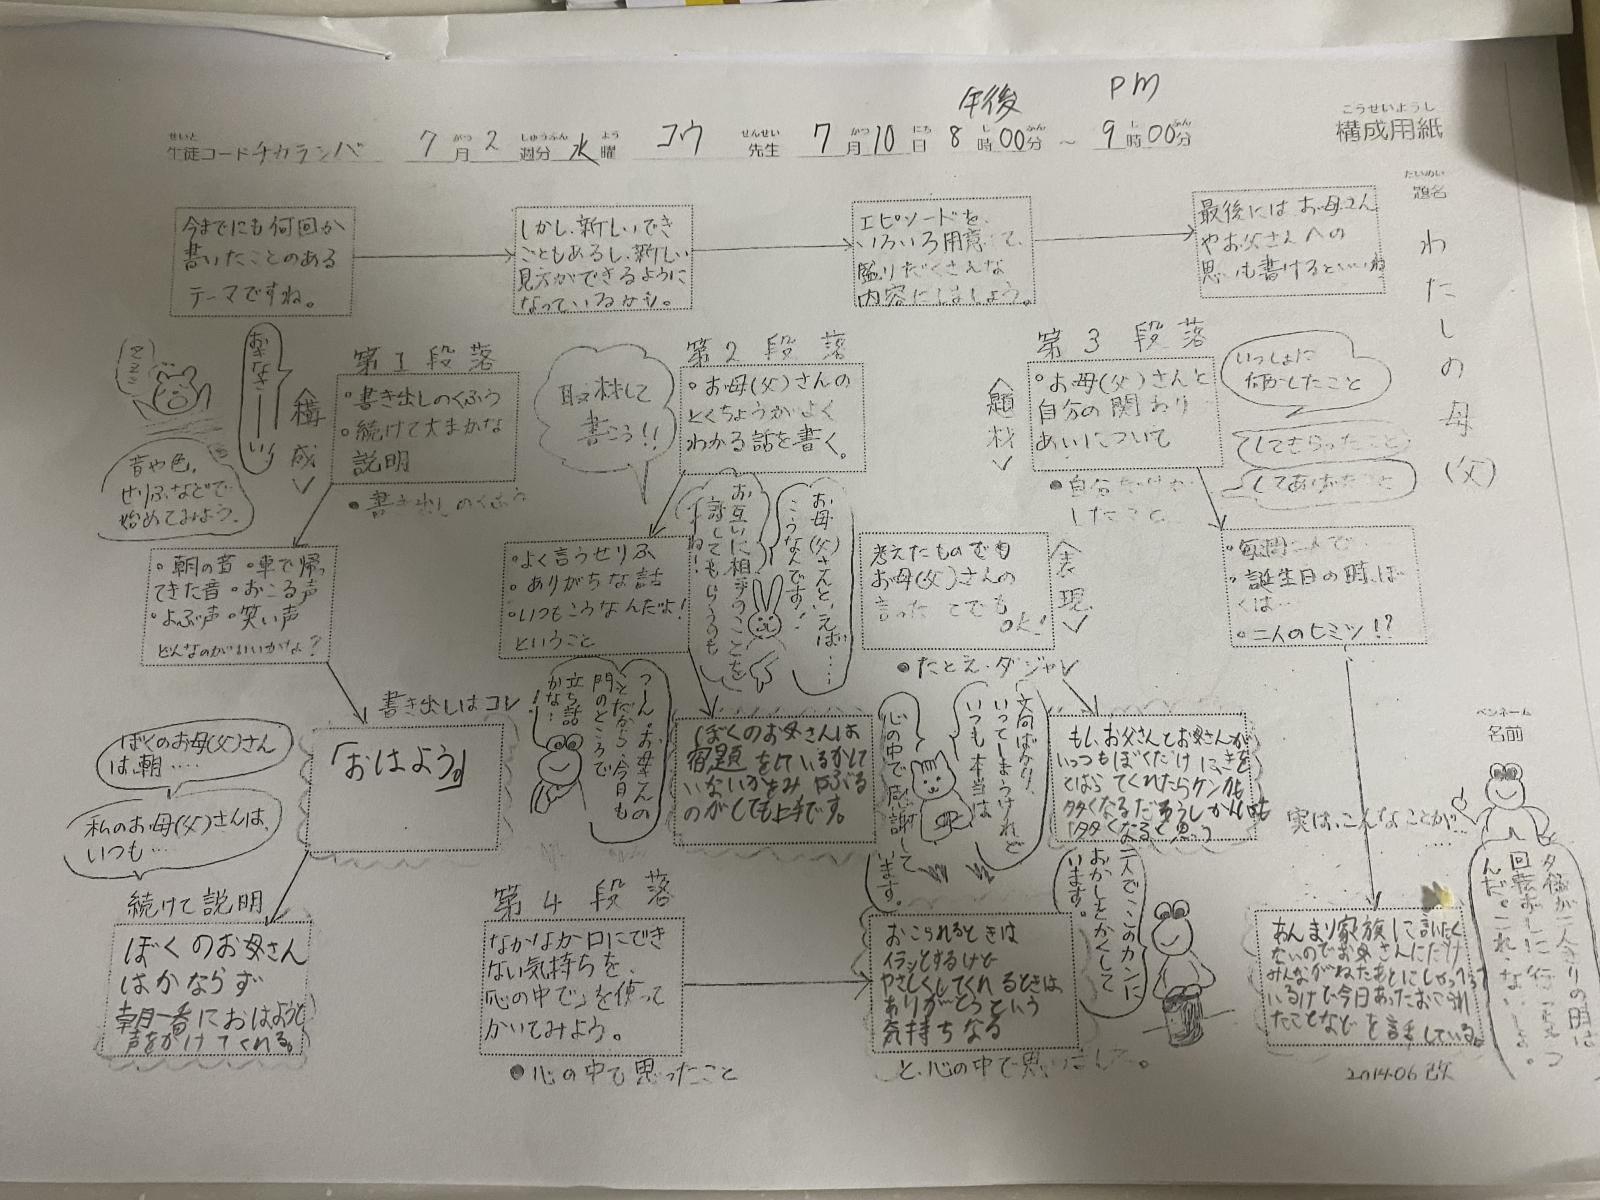 午後 PM
こうせいようし
構成用紙
生徒コード チカラシバ 7月2週分 水曜 コウ 先生 7月10日8時00分 ~ 9時00分
せいと がつ しゅうぶん よう せんせい がつ にち じ ふん じ ふん
だいめい
題名
わたしの母(父)
今までにも何回か
書いたことのある
テーマですね。
しかし、新しいでき
ごともあるし、新しい
見方ができるように
なっているかも。
エピソードを、
いろいろ用意して、
盛りだくさんな
内容にしましょう。
最後には お母さん
やお父さんへの
思いも書けるといいね
第1段落
<構成>
・書き出しのくふう
・続けて大まかな
説明
●書き出しのくふう
おきなさーい!
ZZZ
音や色、
せりふなどで
始めてみよう。
・朝の音 ・車で帰っ
てきた音 ・おこる声
・よぶ声 ・笑い声
どんなのがいいかな?
書き出しはコレ
「おはよう。」
ぼくのお母(父)さん
は、朝……
私のお母(父)さんは、
いつも……
続けて説明
ぼくのお母さん
はかならず
朝一番におはようと
声をかけてくれる。
第2段落
取材して
書こう!!
・お母(父)さんの
とくちょうがよく
わかる話を書く。
・よく言うせりふ
・ありがちな話
・いつもこうなんだよ!
ということ
お母(父)さんといえば……
こうなんです!
お互いに相手のことを
話してもらうのも
いいね!
うーん。お母さんの
ことだから、今日も
門のところで
立ち話
かな…!
ぼくのお母さんは
宿題をしているかして
いないかをみやぶる
のがとても上手です。
第3段落
<題材>
・お母(父)さんと
自分の関わり
あいについて
●自分だけが
したこと
いっしょに
何かしたこと
してもらったこと
してあげたこと
・毎週二人で…
・誕生日の時、ぼ
くは…
・二人のヒミツ!?
実は、こんなことが…
<表現>
考えたものでも
お母(父)さんの
言ったことでも
OK!
●たとえ・ダジャレ
あんまり家族に話したく
ないのでお母さんにだけ
みんながねたあとにしゃべって
いるけど今日あったおこられ
たことなどを話している。
ペンネーム
名前
夕飯が二人きりの時は
回転ずしに行っちゃう
んだ。これ、ないしょ。
二人でこのカンに
おかしをかくして
います。
第4段落
なかなか口にでき
ない気持ちを、
「心の中で」を使って
かいてみよう。
●心の中で思ったこと
文句ばかり、
いってしまうけれど
いつも本当は
心の中で感謝して
います。
おこられるときは
イラッとするけど
やさしくしてくれるときは
ありがとうという
気持ちなる
と、心の中で思いました。
2014.06改